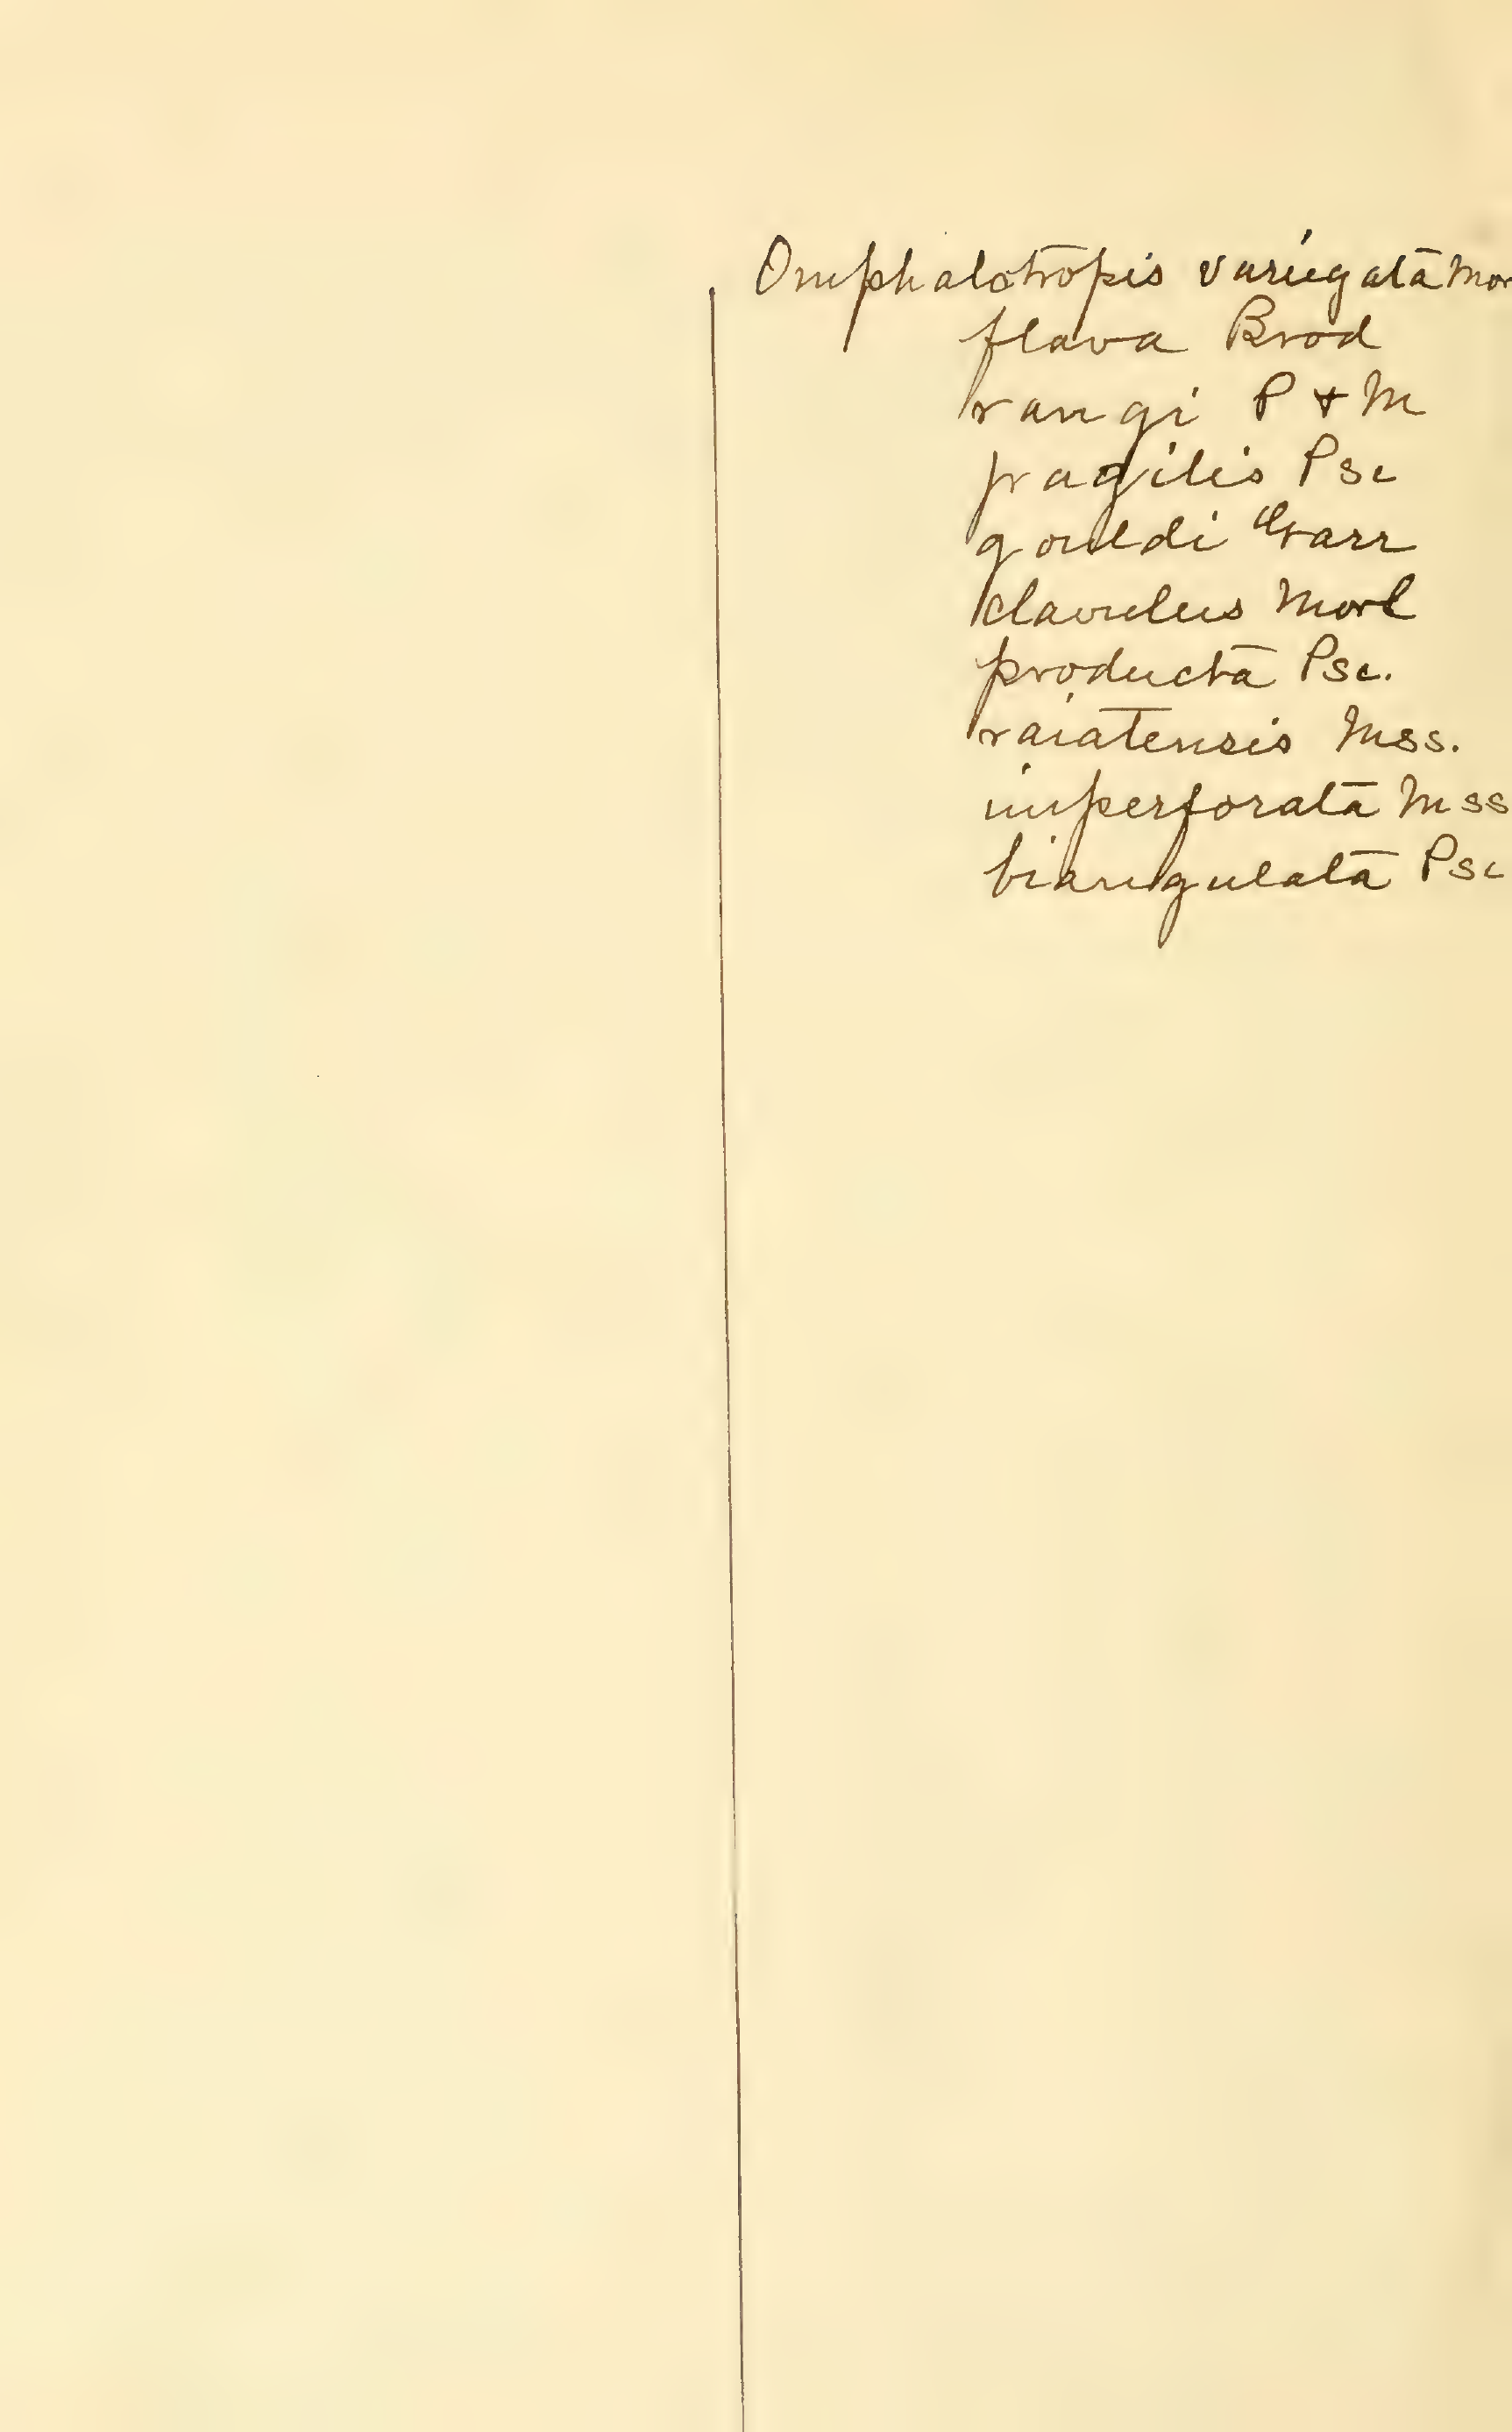 Omphalotropis variegata Mor
flava Brod
rangi P & M
fragilis Psc
gouldi Garr
clavulus Morl
producta Psc.
raiatensis Mss.
imperforata Mss
biangulata Psc